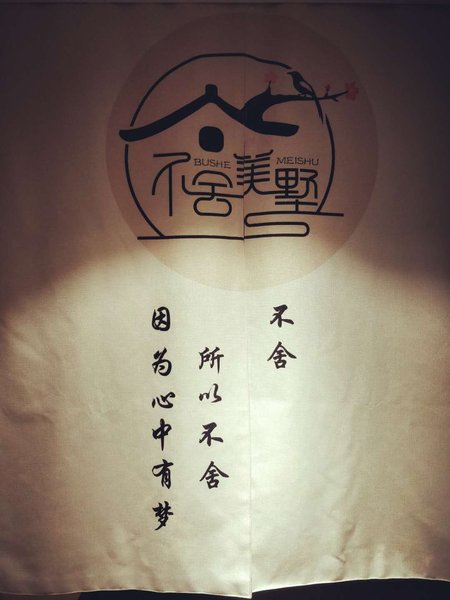 不舍美墅
BUSHE
MEISHU
不舍
所以不舍
因为心中有梦